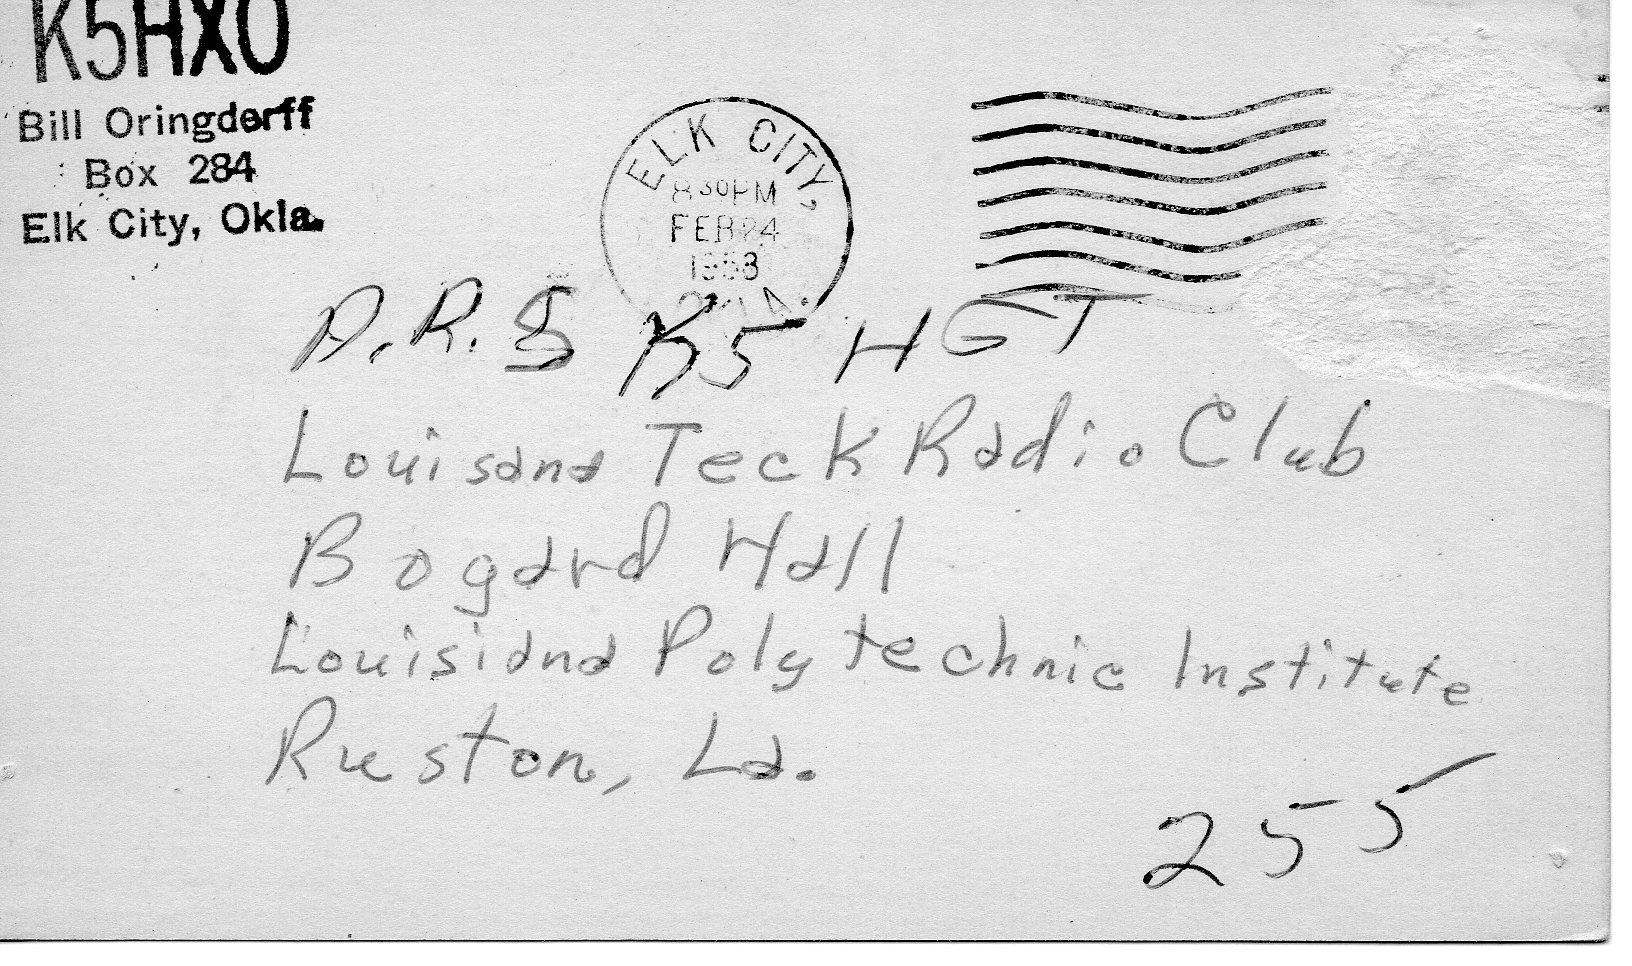 K5HXO
Bill Oringderff
Box 284
Elk City, Okla.
ELK CITY,
8 30PM
FEB 24
1958
OKLA.
A.R.S K5HGT
Louisana Teck Radio Club
Bogard Hall
Louisiana Polytechnic Institute
Ruston, La.
255